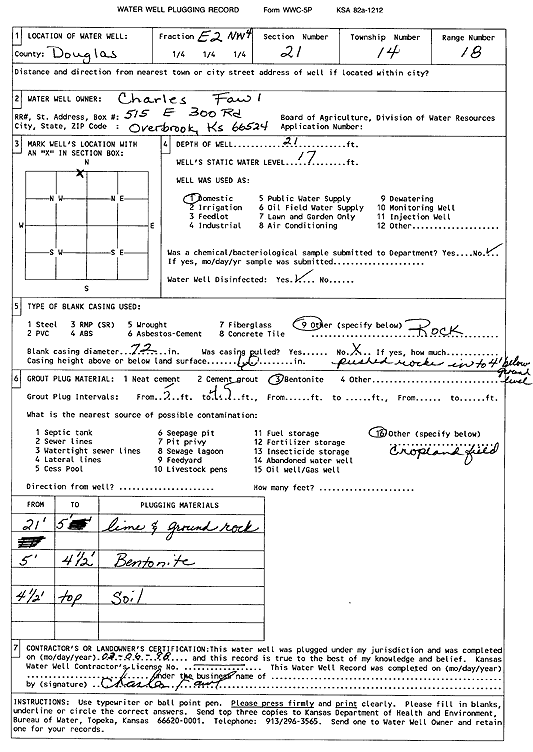 WATER WELL PLUGGING RECORD Form WWC-5P KSA 82a-1212
1 LOCATION OF WATER WELL: Fraction E2 NW4 Section Number Township Number Range Number
County: Douglas 1/4 1/4 1/4 21 14 18
Distance and direction from nearest town or city street address of well if located within city?
2 WATER WELL OWNER: Charles Fawl
RR#, St. Address, Box #: 515 E 300 Rd Board of Agriculture, Division of Water Resources
City, State, ZIP Code : Overbrook, Ks 66524 Application Number:
3 MARK WELL'S LOCATION WITH AN "X" IN SECTION BOX:
N
X
N W N E
W E
S W S E
S
4 DEPTH OF WELL.....21.....ft.
WELL'S STATIC WATER LEVEL...17...ft.
WELL WAS USED AS:
1 Domestic 5 Public Water Supply 9 Dewatering
2 Irrigation 6 Oil Field Water Supply 10 Monitoring Well
3 Feedlot 7 Lawn and Garden Only 11 Injection Well
4 Industrial 8 Air Conditioning 12 Other.........
Was a chemical/bacteriological sample submitted to Department? Yes....No.✓
If yes, mo/day/yr sample was submitted...............
Water Well Disinfected: Yes.✓ No......
5 TYPE OF BLANK CASING USED:
1 Steel 3 RMP (SR) 5 Wrought 7 Fiberglass 9 Other (specify below) Rock
2 PVC 4 ABS 6 Asbestos-Cement 8 Concrete Tile
Blank casing diameter..72..in. Was casing pulled? Yes...... No.X.. If yes, how much.........
Casing height above or below land surface......60......in. pushed rocks in to 4' below ground level
6 GROUT PLUG MATERIAL: 1 Neat cement 2 Cement grout 3 Bentonite 4 Other...........
Grout Plug Intervals: From.5.ft. to.4.5.ft., From......ft. to ....ft., From...... to......ft.
What is the nearest source of possible contamination:
1 Septic tank 6 Seepage pit 11 Fuel storage 16 Other (specify below)
2 Sewer lines 7 Pit privy 12 Fertilizer storage
3 Watertight sewer lines 8 Sewage lagoon 13 Insecticide storage Cropland field
4 Lateral lines 9 Feedyard 14 Abandoned water well
5 Cess Pool 10 Livestock pens 15 Oil well/Gas well
Direction from well? ................... How many feet? ...................
FROM TO PLUGGING MATERIALS
21' 5' lime & ground rock
5' 4 1/2' Bentonite
4 1/2' top Soil
7 CONTRACTOR'S OR LANDOWNER'S CERTIFICATION:This water well was plugged under my jurisdiction and was completed
on (mo/day/year).02-06-98.... and this record is true to the best of my knowledge and belief. Kansas
Water Well Contractor's License No. .............. This Water Well Record was completed on (mo/day/year)
....................under the business name of .................
by (signature) ..Charles Fawl
INSTRUCTIONS: Use typewriter or ball point pen. Please press firmly and print clearly. Please fill in blanks,
underline or circle the correct answers. Send top three copies to Kansas Department of Health and Environment,
Bureau of Water, Topeka, Kansas 66620-0001. Telephone: 913/296-3565. Send one to Water Well Owner and retain
one for your records.